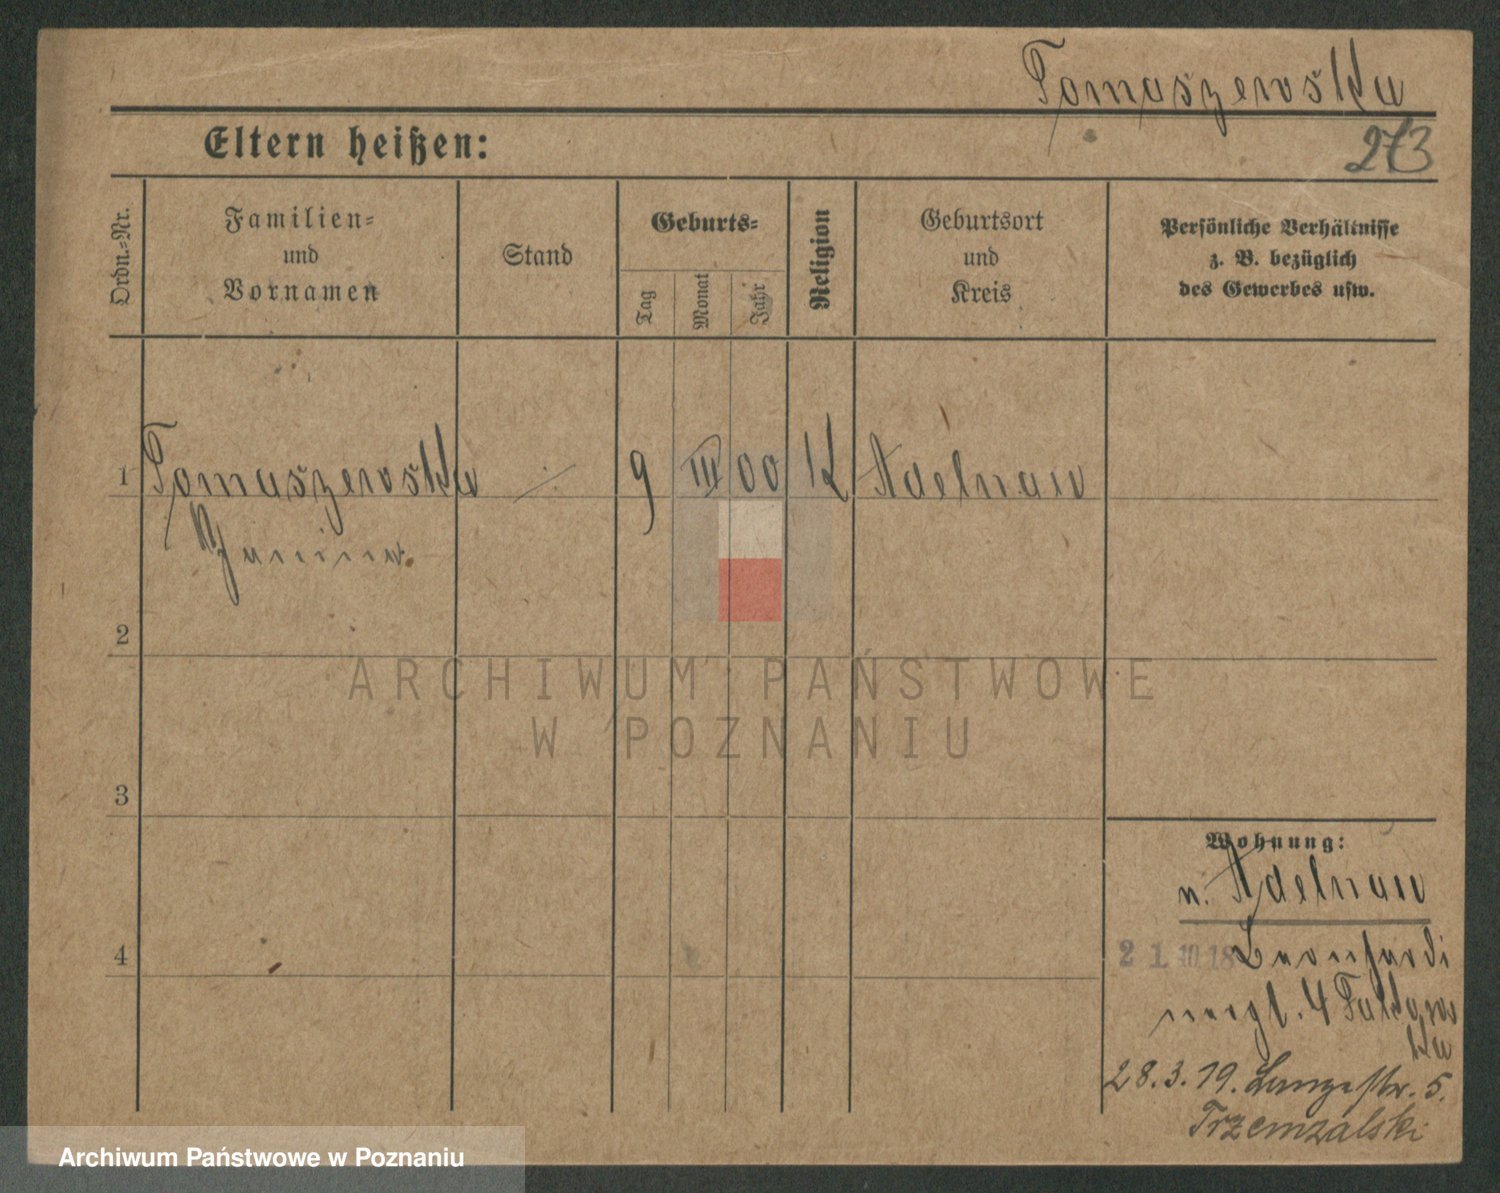 Tomaszewska
273
Eltern heißen:
Ordn.=Nr.
Familien=
und
Vornamen
Stand
Geburts=
Tag
Monat
Jahr
Religion
Geburtsort
und
Kreis
Persönliche Verhältnisse
z. B. bezüglich
des Gewerbes usw.
1 Tomaszewska ·/· 9 III 00 K Adelnau
Janina
2
ARCHIWUM PAŃSTWOWE
W POZNANIU
3
Wohnung:
n. Adelnau
4
21.10.18
4
28.3.19. Langestr. 5.
Trzemzalski
Archiwum Państwowe w Poznaniu